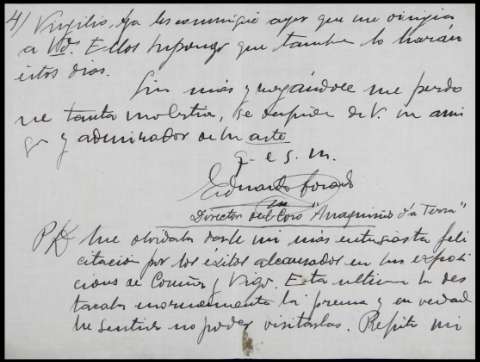 4) Virgilio, ya les comuniqué ayer que me dirigía
a Vd. Ellos supongo que tambien lo harán
estos dias.
Sin más y rogándole me perdo
ne tanta molestia, se despide de V. un ami
go y admirador de su arte
q. e. s. m.
Eduardo
Director del Coro "Anaquiños d'a Terra"
PD Me olvidaba darle mi más entusiasta feli
citación por los éxitos alcanzados en sus exposi
ciones de Coruña y Vigo. Esta ultima la des
tacaba enormemente la prensa y en verdad
he sentido no poder visitarlas. Repito mi